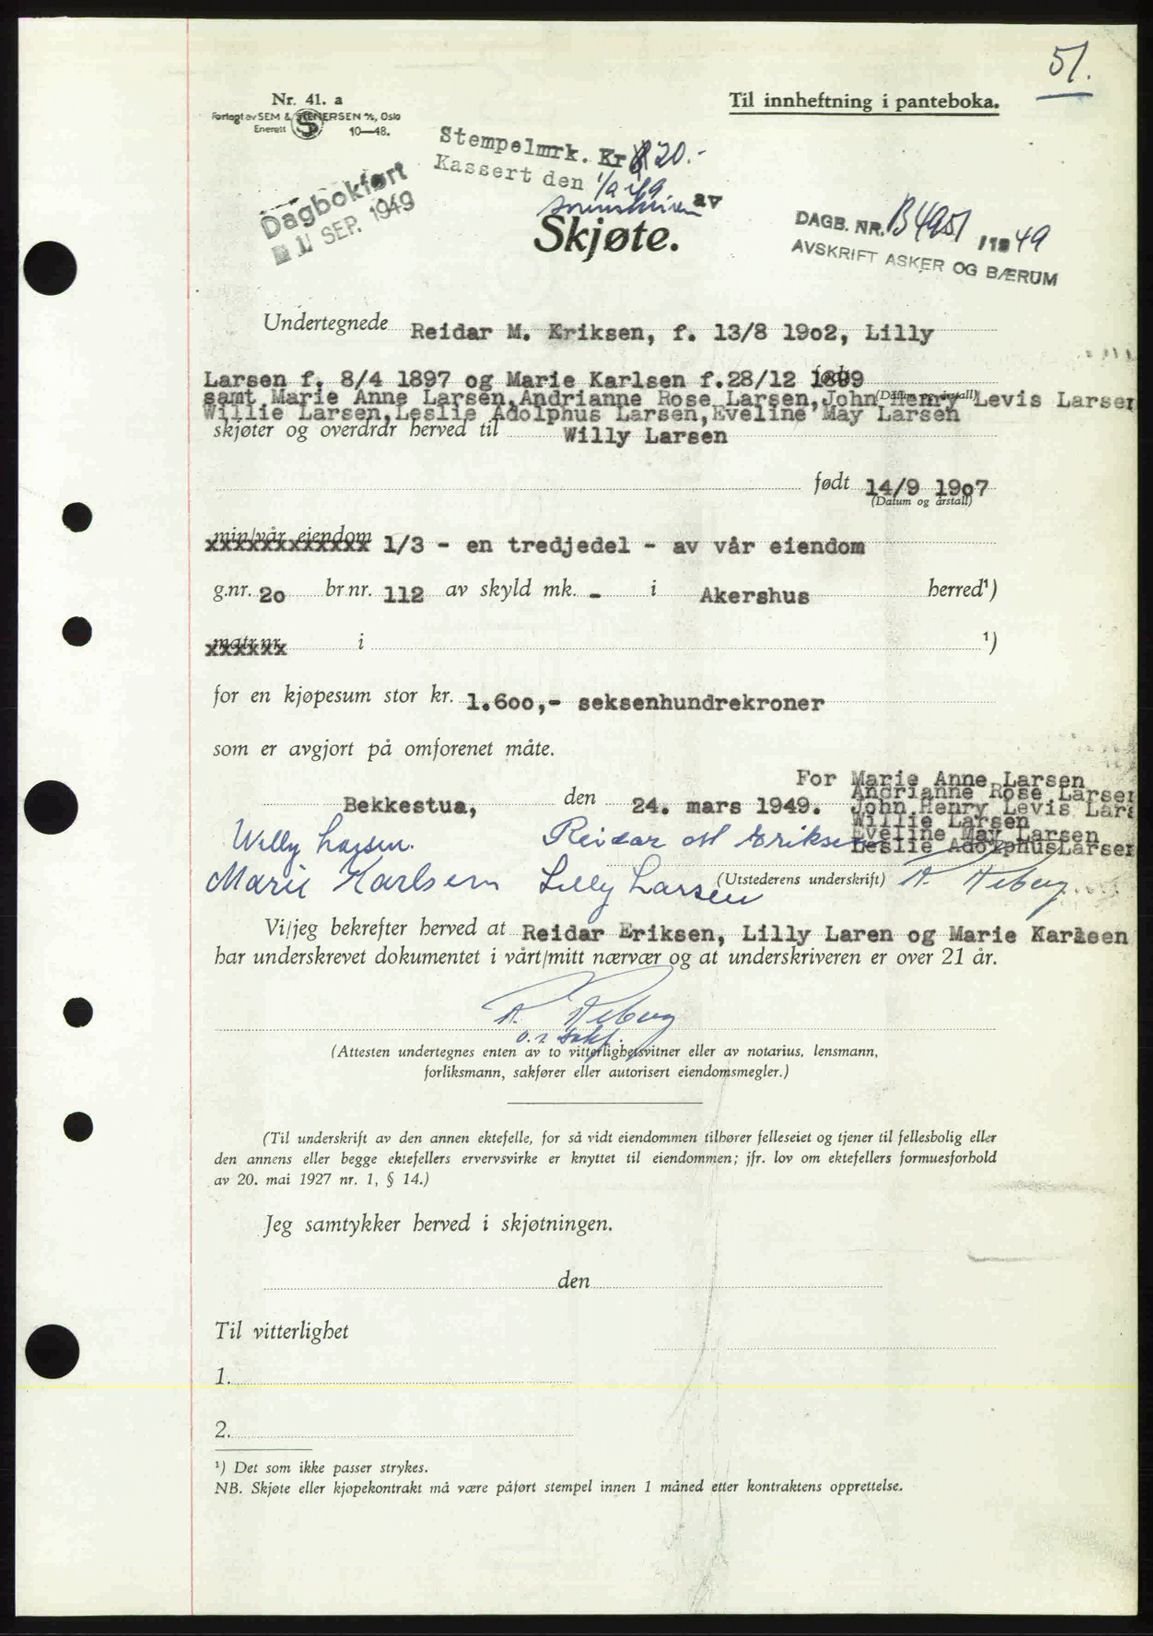 51.
Nr. 41. a
Til innheftning i panteboka.
Forlagt av SEM & STENERSEN A/S, Oslo
Enerett 10—48.
Stempelmrk. Kr 20.-
Kassert den 1/9 49 av
sorenskriveren
Dagbokført
1 SEP. 1949
Skjøte.
DAGB. NR. B4951 /19 49
AVSKRIFT ASKER OG BÆRUM
Undertegnede Reidar M. Eriksen, f. 13/8 19o2, Lilly
Larsen f. 8/4 1897 og Marie Karlsen f.28/12 1899
samt Marie Anne Larsen,Andrianne Rose Larsen,John Henry Levis Larsen
(Datum og årstall)
Willie Larsen,Leslie Adolphus Larsen,Eveline May Larsen
skjøter og overdrar herved til Willy Larsen
født 14/9 19o7
(Datum og årstall)
min/vår eiendom 1/3 - en tredjedel - av vår eiendom
g.nr. 2o br.nr. 112 av skyld mk. - i Akershus herred¹)
matr.nr. i ¹)
for en kjøpesum stor kr. 1.6oo,- seksenhundrekroner
som er avgjort på omforenet måte.
For Marie Anne Larsen
Andrianne Rose Larsen
Bekkestua, den 24. mars 1949. John Henry Levis Lars
Willie Larsen
Willy Larsen. Reidar M Eriksen Eveline May Larsen
Leslie AdolphusLarsen
Marie Karlsen Lilly Larsen (Utstederens underskrift)
Vi/jeg bekrefter herved at Reidar Eriksen, Lilly Laren og Marie Karlsen
har underskrevet dokumentet i vårt/mitt nærvær og at underskriveren er over 21 år.
o.r.sakf.
(Attesten undertegnes enten av to vitterlighetsvitner eller av notarius, lensmann,
forliksmann, sakfører eller autorisert eiendomsmegler.)
(Til underskrift av den annen ektefelle, for så vidt eiendommen tilhører felleseiet og tjener til fellesbolig eller
den annens eller begge ektefellers ervervsvirke er knyttet til eiendommen; jfr. lov om ektefellers formuesforhold
av 20. mai 1927 nr. 1, § 14.)
Jeg samtykker herved i skjøtningen.
den
Til vitterlighet
1.
2.
¹) Det som ikke passer strykes.
NB. Skjøte eller kjøpekontrakt må være påført stempel innen 1 måned etter kontraktens opprettelse.